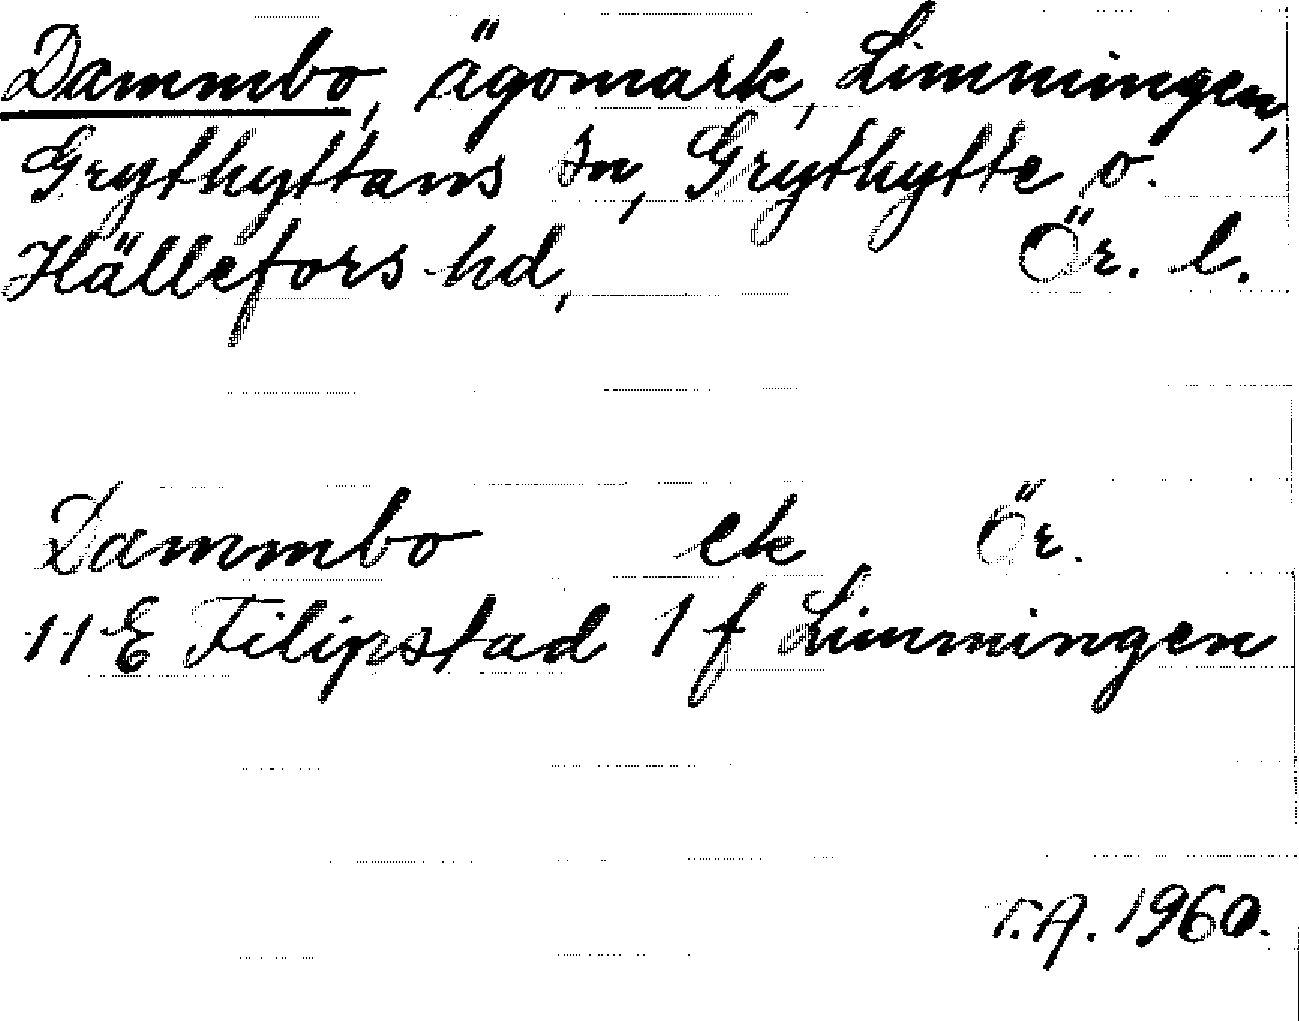 Dammbo, ägomark, Limmingen,
Grythyttans sn, Grythytte o.
Hällefors hd, Ör. l.
Dammbo ek Ör.
11E Filipstad 1 f Limmingen
T.A. 1960.